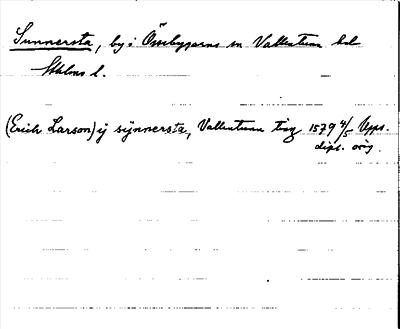 Sunnersta, by i Össebygarns sn Vallentuna hd
Sthlms l.
(Erich Larson) ij synnersta, Vallentuna ting 1579 4/5 Upps.
dipl. orig.